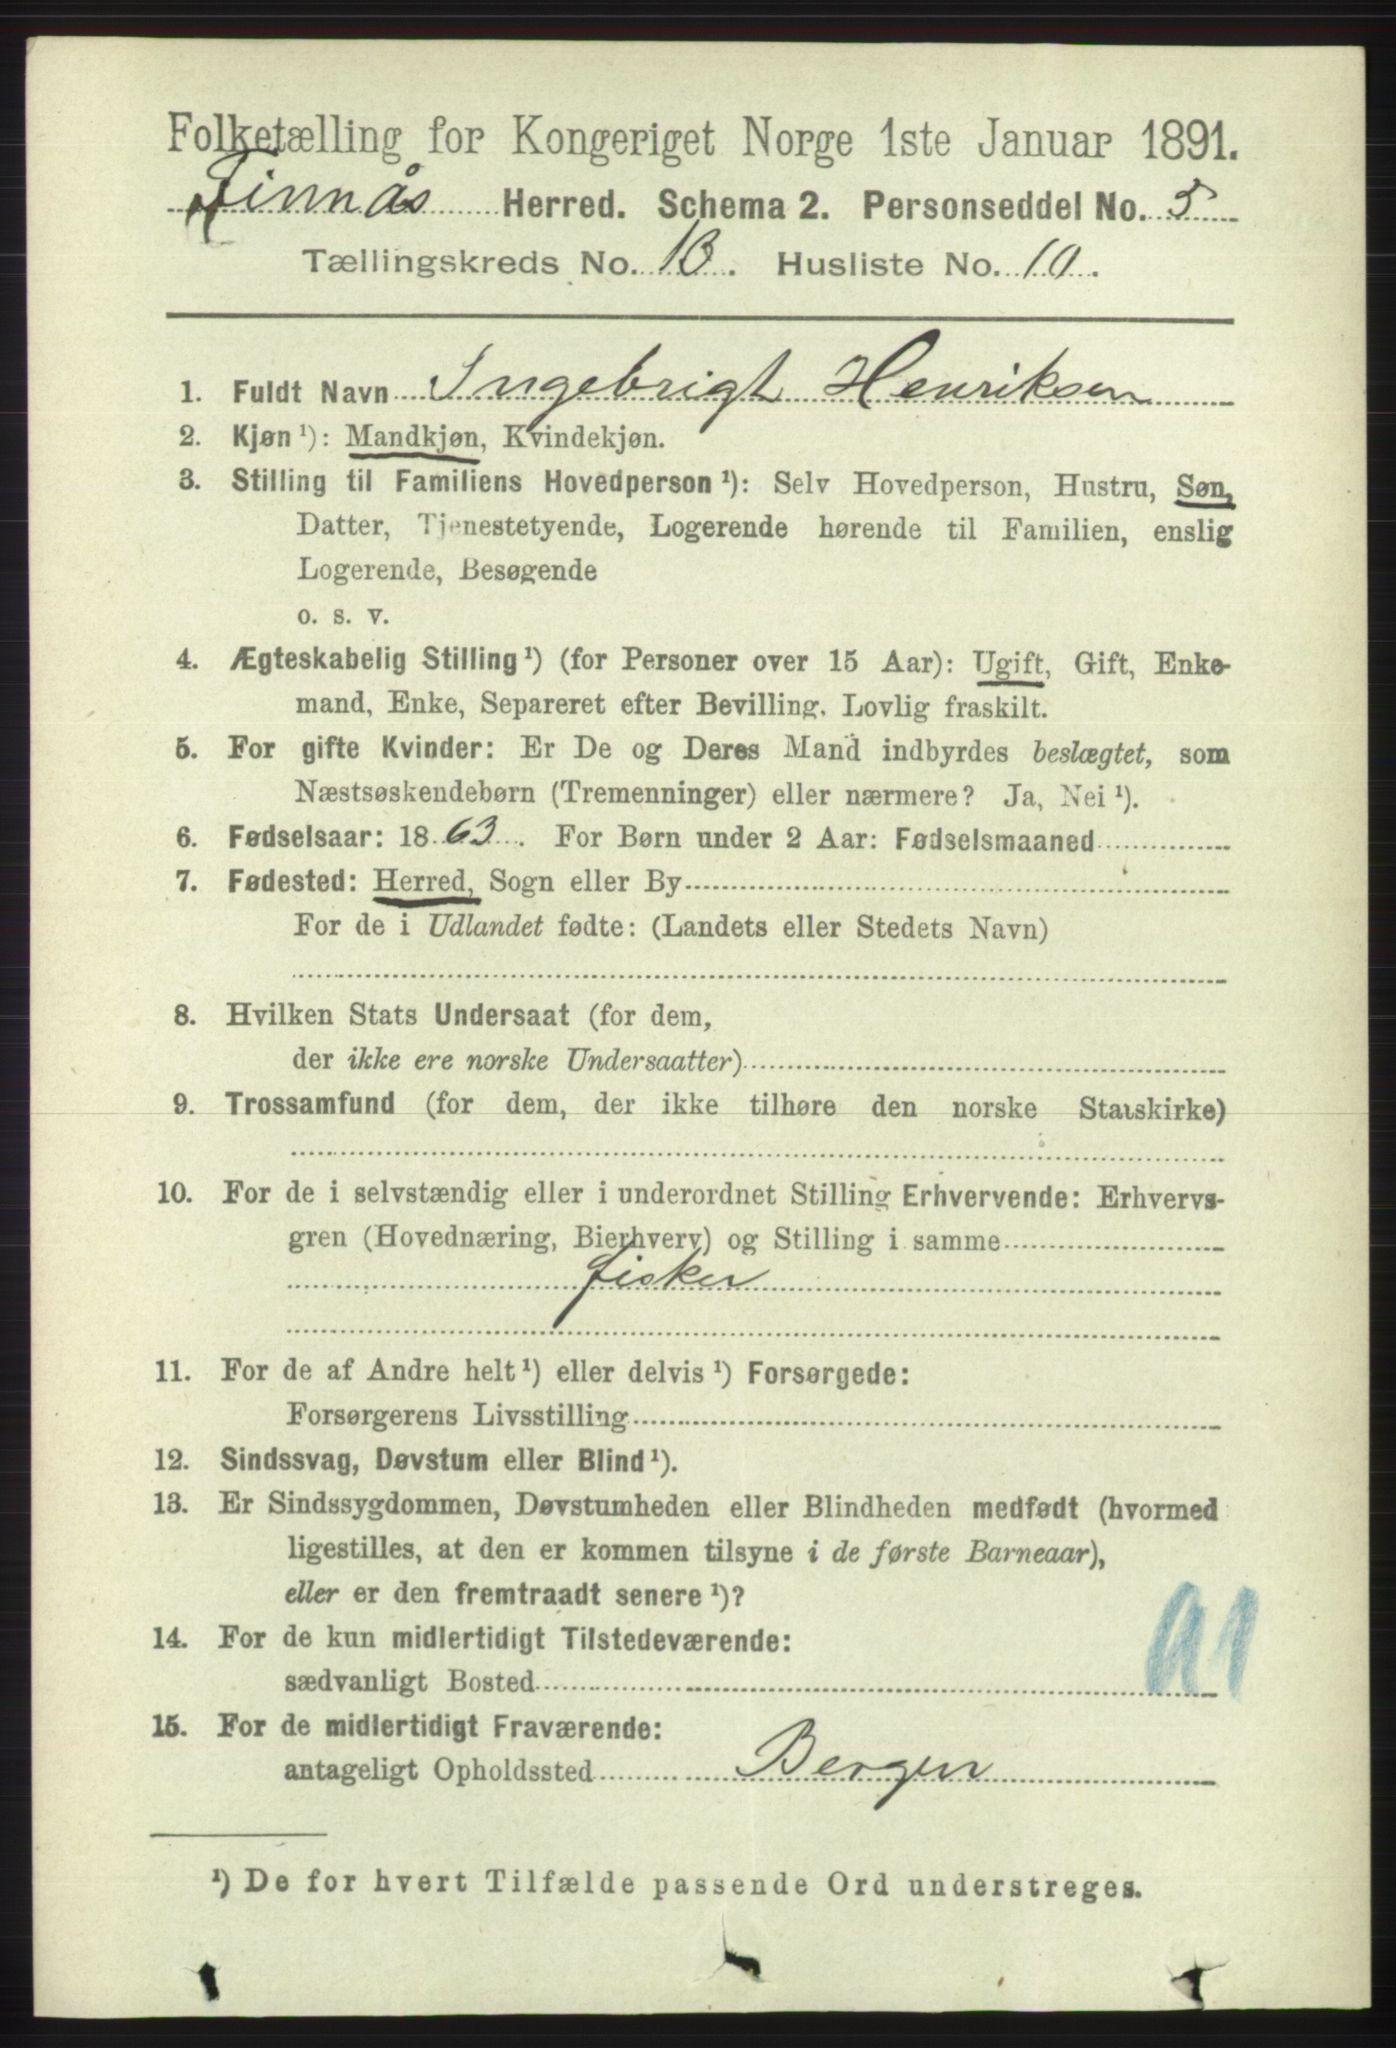 Folketælling for Kongeriget Norge 1ste Januar 1891.
Finnås Herred. Schema 2. Personseddel No. 5
Tællingskreds No. 13. Husliste No. 10.
1. Fuldt Navn Ingebrigt Henriksen
2. Kjøn ¹): Mandkjøn, Kvindekjøn.
3. Stilling til Familiens Hovedperson ¹): Selv Hovedperson, Hustru, Søn,
Datter, Tjenestetyende, Logerende hørende til Familien, enslig
Logerende, Besøgende
o. s. v.
4. Ægteskabelig Stilling ¹) (for Personer over 15 Aar): Ugift, Gift, Enke-
mand, Enke, Separeret efter Bevilling. Lovlig fraskilt.
5. For gifte Kvinder: Er De og Deres Mand indbyrdes beslægtet, som
Næstsøskendebørn (Tremenninger) eller nærmere? Ja, Nei ¹).
6. Fødselsaar: 1863. For Børn under 2 Aar: Fødselsmaaned
7. Fødested: Herred, Sogn eller By
For de i Udlandet fødte: (Landets eller Stedets Navn)
8. Hvilken Stats Undersaat (for dem,
der ikke ere norske Undersaatter)
9. Trossamfund (for dem, der ikke tilhøre den norske Statskirke)
10. For de i selvstændig eller i underordnet Stilling Erhvervende: Erhvervs-
gren (Hovednæring, Bierhverv) og Stilling i samme
fisker
11. For de af Andre helt ¹) eller delvis ¹) Forsørgede:
Forsørgerens Livsstilling
12. Sindssvag, Døvstum eller Blind ¹).
13. Er Sindssygdommen, Døvstumheden eller Blindheden medfødt (hvormed
ligestilles, at den er kommen tilsyne i de første Barneaar),
eller er den fremtraadt senere ¹)?
14. For de kun midlertidigt Tilstedeværende:
sædvanligt Bosted
15. For de midlertidigt Fraværende:
antageligt Opholdssted Bergen
¹) De for hvert Tilfælde passende Ord understreges.